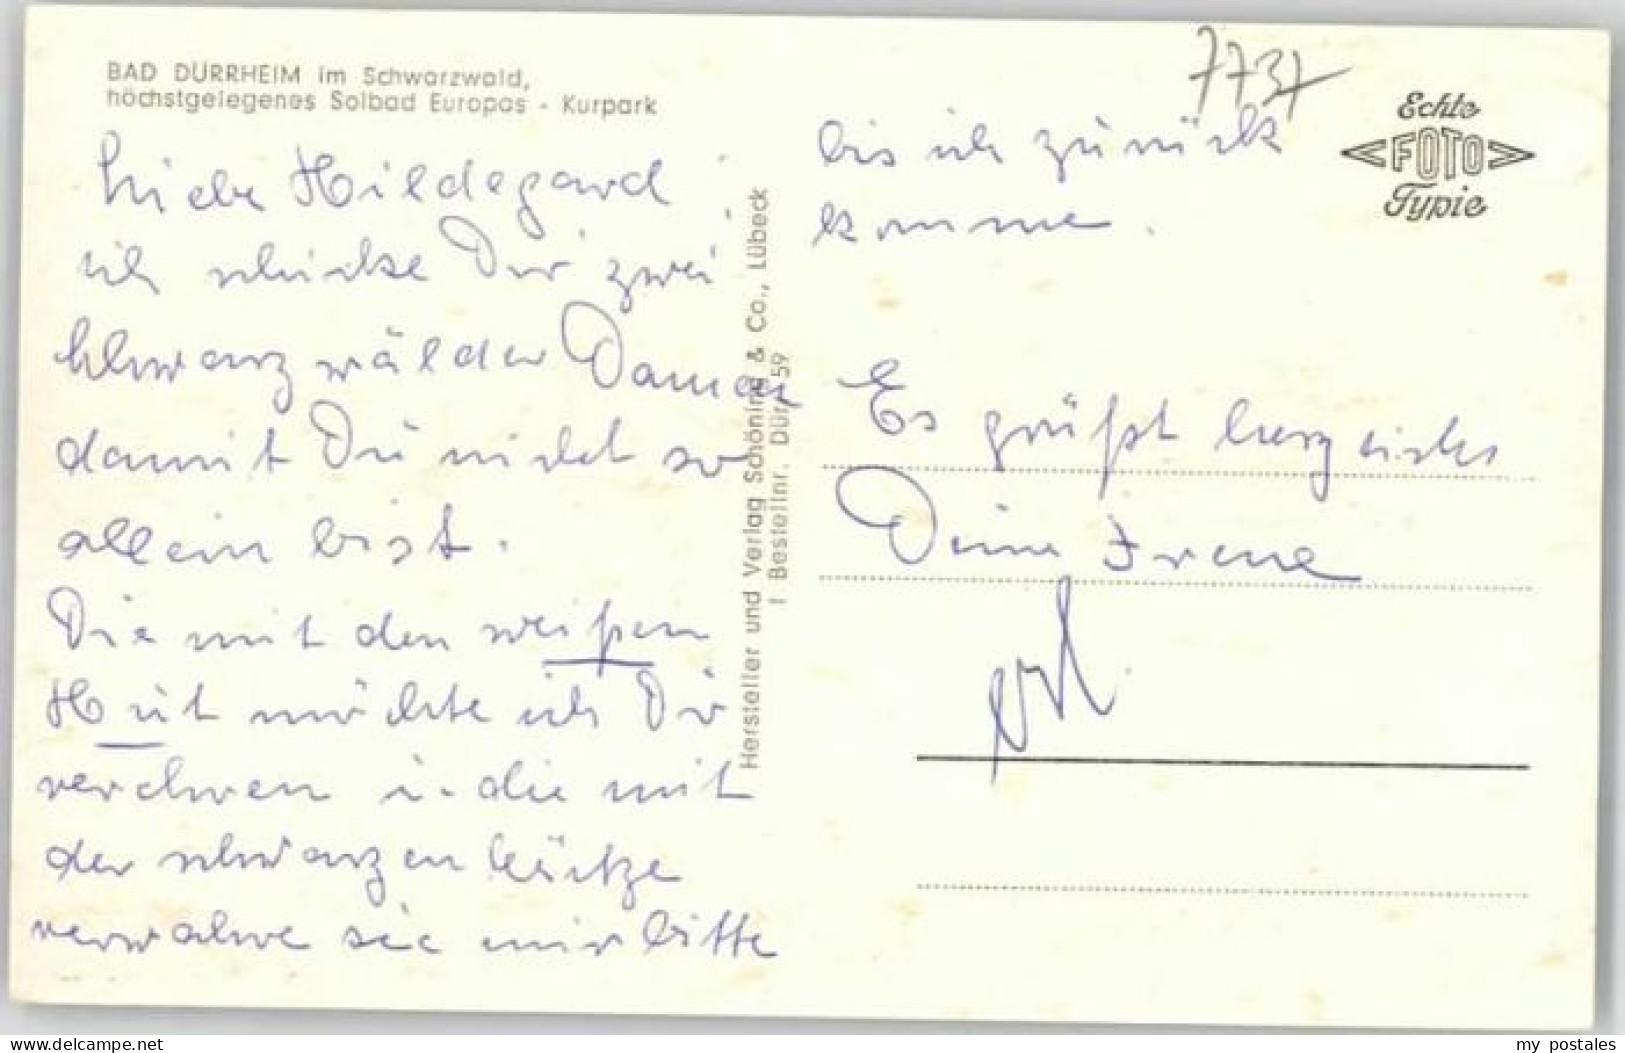 BAD DÜRRHEIM im Schwarzwald,
höchstgelegenes Solbad Europas - Kurpark
Liebe Hildegard!
ich schicke Dir zwei
schwarzwälder Damen
damit Du nicht so
allein bist.
Die mit den weißen
Hut möchte ich Dir
verehren u. die mit
der schwarzen Mütze
verwahre sie mir bitte
Hersteller und Verlag Schöning & Co., Lübeck
Bestellnr. Dür 59
7737
Echte
FOTO
Typie
bis ich zurück
komme.
Es grüßt herzlichs
Deine Irene
my postales
www.delcampe.net